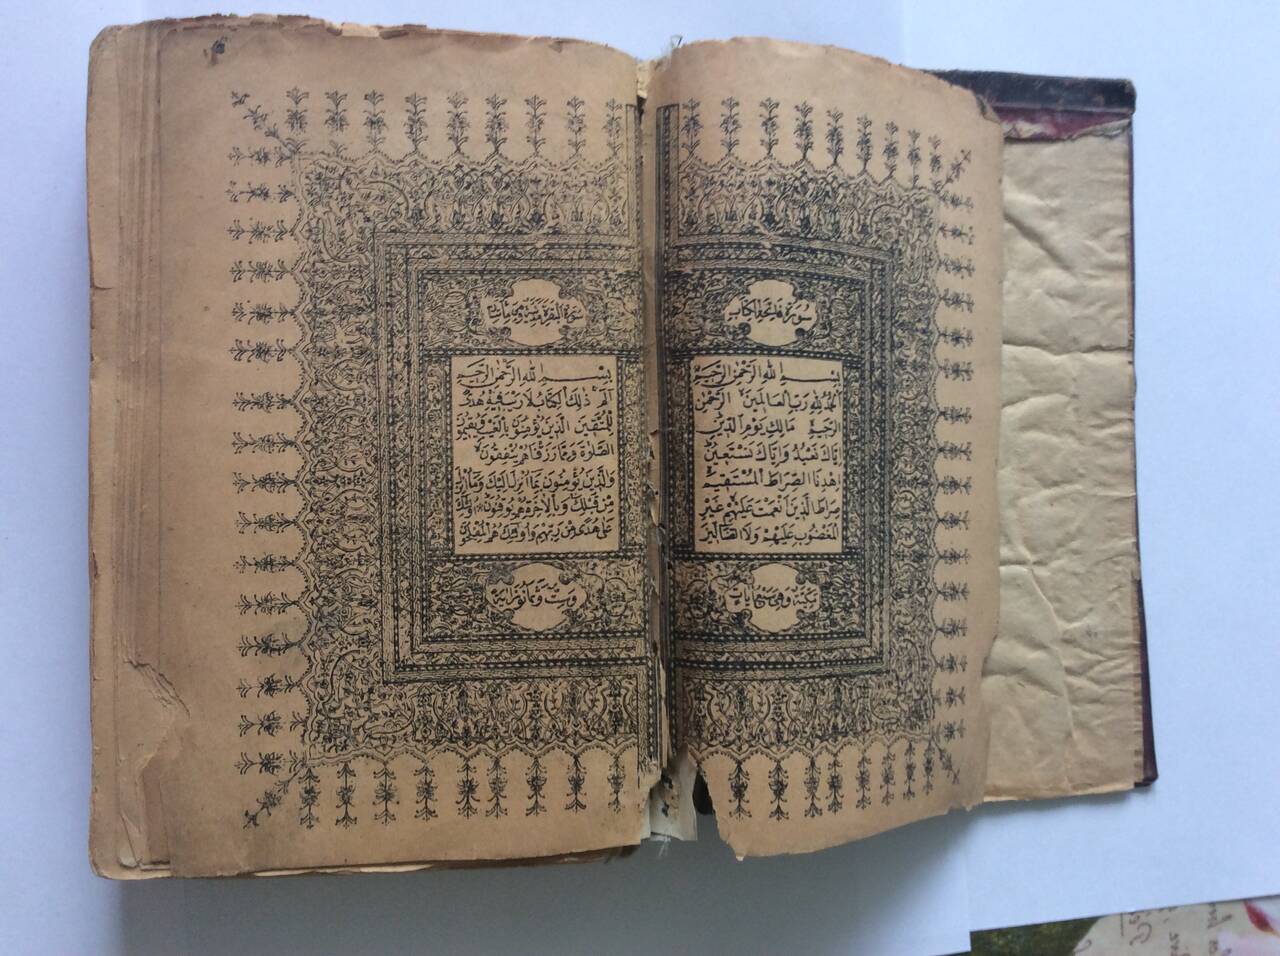 سورة فاتحة الكتاب
بسم الله الرحمن الرحيم
الحمد لله رب العالمين الرحمن
الرحيم مالك يوم الدين
إياك نعبد وإياك نستعين
اهدنا الصراط المستقيم
صراط الذين أنعمت عليهم غير
المغضوب عليهم ولا الضالين
مكية وهي سبع آيات
سورة البقرة مدنية وهي مائتا
بسم الله الرحمن الرحيم
الم ذلك الكتاب لا ريب فيه هدى
للمتقين الذين يؤمنون بالغيب ويقيمون
الصلاة ومما رزقناهم ينفقون
والذين يؤمنون بما أنزل إليك وما أنزل
من قبلك وبالآخرة هم يوقنون أولئك
على هدى من ربهم وأولئك هم المفلحون
وست وثمانون آية